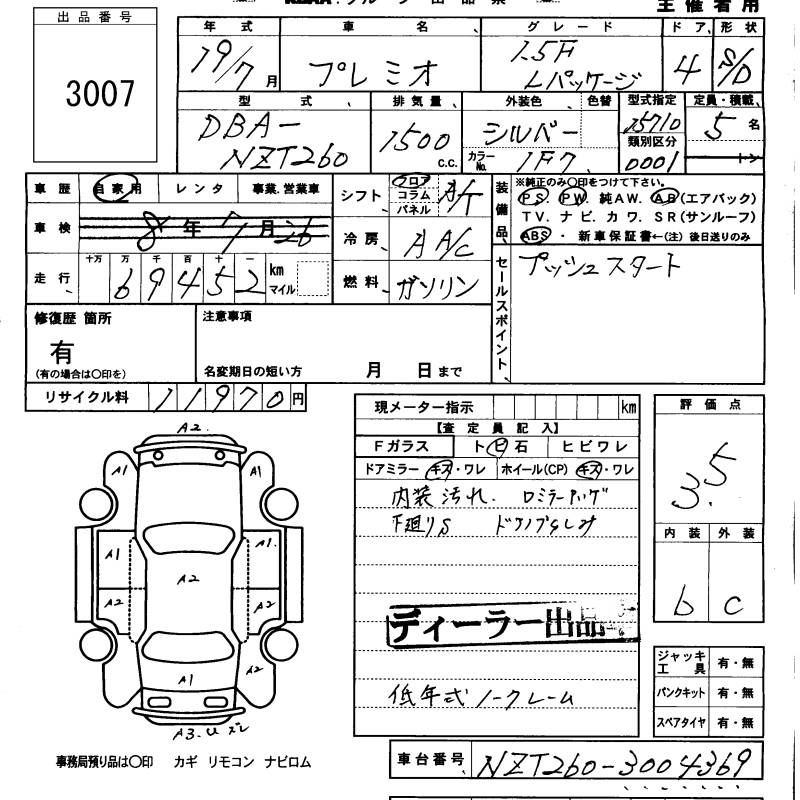 出品番号
3007
主催者用
年式 車名 グレード ドア 形状
19/7月 プレミオ 1.5F Lパッケージ 4 S/D
型式 排気量 外装色 色替 型式指定 定員・積載
DBA-NZT260 1500 c.c. シルバー 15710 5名
カラーNo. 1F7 類別区分 0001 トン
車歴 自家用 レンタ 事業.営業車
シフト フロア コラム パネル A/T
車検 8年7月26
冷房 A A/C
走行 十万 万 千 百 十 一
69452 km マイル
燃料 ガソリン
装備品 ※純正のみ○印をつけて下さい。
PS. PW. 純AW. AB(エアバック)
TV. ナビ. カワ. SR(サンルーフ)
ABS・新車保証書←(注)後日送りのみ
セールスポイント
プッシュスタート
修復歴 箇所
有
(有の場合は○印を)
注意事項
名変期日の短い方 月 日まで
リサイクル料 11970円
現メーター指示 km
【査定員記入】
Fガラス トビ石 ヒビワレ
ドアミラー キズ・ワレ ホイール(CP) キズ・ワレ
内装汚れ.
下廻りS
ディーラー出品
低年式ノークレーム
評価点
3.5
内装 外装
b c
ジャッキ工具 有・無
パンクキット 有・無
スペアタイヤ 有・無
A2.
A1 A1
A1 A1.
A2 A2 A2
A2
A1
A3.
事務局預り品は○印 カギ リモコン ナビロム
車台番号 NZT260-3004369